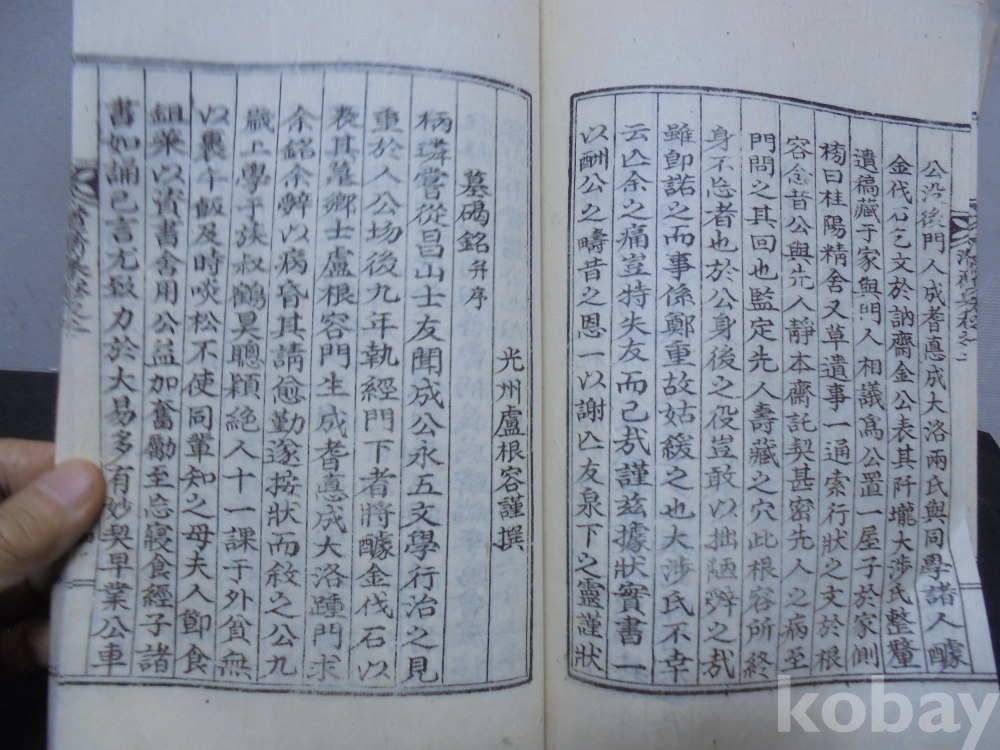 公沒後門人成耆悳成大洛兩氏與同學諸人醵
金代石乞文於訥齋金公表其阡壠大涉氏整釐
遺稿藏于家與門人相議爲公置一屋子於家側
榜曰桂陽精舍又草遺事一通索行狀之文於根
容念昔公與先人靜本齋託契甚密先人之病至
門問之其回也監定先人壽藏之穴此根容所終
身不忘者也於公身後之役豈敢以拙陋辭之哉
雖卽諾之而事係鄭重故姑緩之也大涉氏不幸
云亡余之痛豈特失友而已哉謹玆據狀實書一
以酬公之疇昔之恩一以謝亡友泉下之靈謹狀
墓碣銘 幷序
光州盧根容謹撰
柄璘嘗從昌山士友聞成公永五文學行治之見
重於人公歿後九年執經門下者將醵金伐石以
表其墓鄉士盧根容門生成耆悳成大洛踵門求
余銘余辭以病昏其請愈勤遂按狀而敘之公九
歲上學于族叔鶴昊聰穎絶人十一課于外貧無
以裹午飯及時啖松不使同輩知之母夫人節食
鉏菜以資書舍用公益加奮勵至忘寢食經子諸
書如誦己言尤致力於大易多有妙契早業公車
kobay